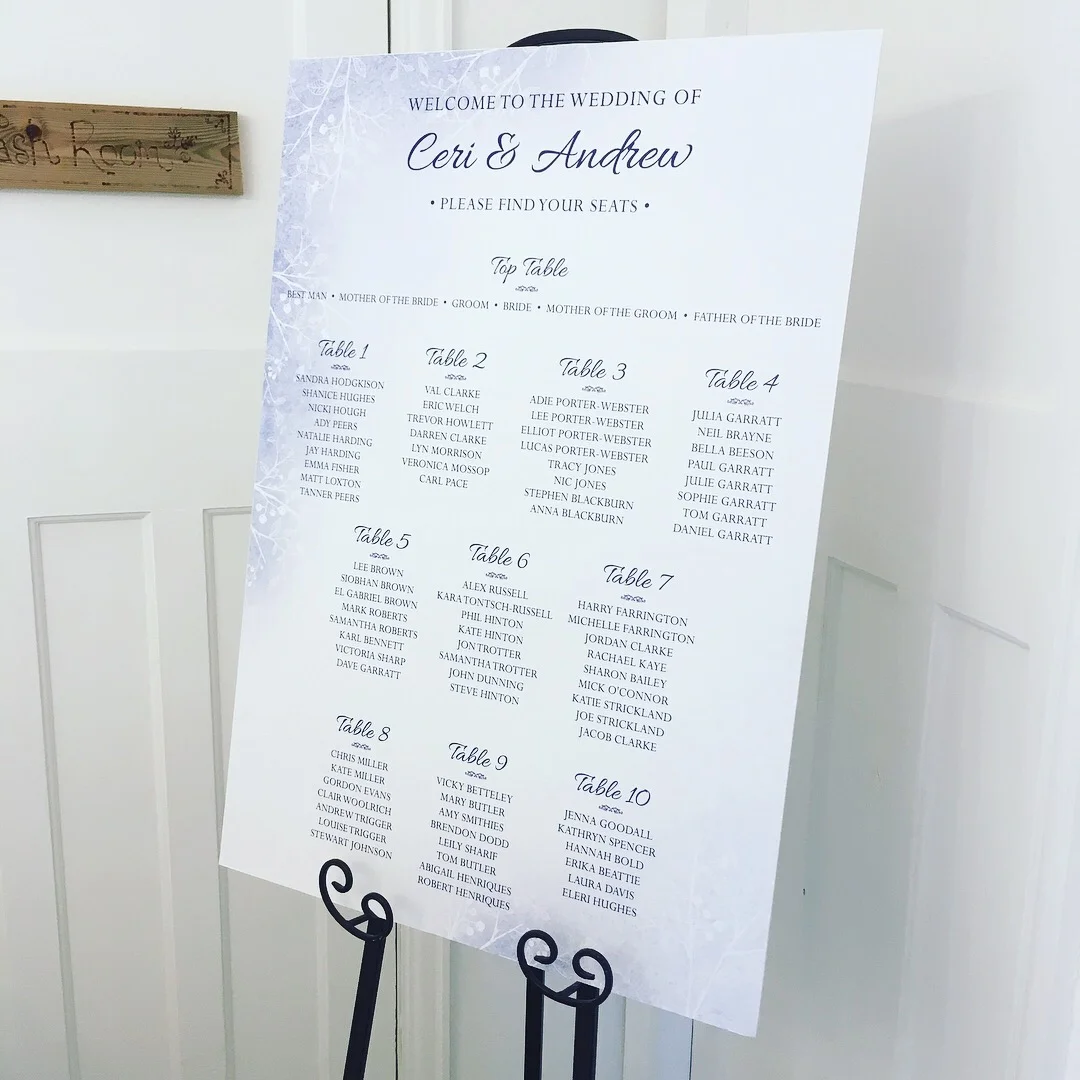 ash Room
WELCOME TO THE WEDDING OF
Ceri & Andrew
• PLEASE FIND YOUR SEATS •
Top Table
BEST MAN • MOTHER OF THE BRIDE • GROOM • BRIDE • MOTHER OF THE GROOM • FATHER OF THE BRIDE
Table 1
SANDRA HODGKISON
SHANICE HUGHES
NICKI HOUGH
ADY PEERS
NATALIE HARDING
JAY HARDING
EMMA FISHER
MATT LOXTON
TANNER PEERS
Table 2
VAL CLARKE
ERIC WELCH
TREVOR HOWLETT
DARREN CLARKE
LYN MORRISON
VERONICA MOSSOP
CARL PACE
Table 3
ADIE PORTER-WEBSTER
LEE PORTER-WEBSTER
ELLIOT PORTER-WEBSTER
LUCAS PORTER-WEBSTER
TRACY JONES
NIC JONES
STEPHEN BLACKBURN
ANNA BLACKBURN
Table 4
JULIA GARRATT
NEIL BRAYNE
BELLA BEESON
PAUL GARRATT
JULIE GARRATT
SOPHIE GARRATT
TOM GARRATT
DANIEL GARRATT
Table 5
LEE BROWN
SIOBHAN BROWN
EL GABRIEL BROWN
MARK ROBERTS
SAMANTHA ROBERTS
KARL BENNETT
VICTORIA SHARP
DAVE GARRATT
Table 6
ALEX RUSSELL
KARA TONTSCH-RUSSELL
PHIL HINTON
KATE HINTON
JON TROTTER
SAMANTHA TROTTER
JOHN DUNNING
STEVE HINTON
Table 7
HARRY FARRINGTON
MICHELLE FARRINGTON
JORDAN CLARKE
RACHAEL KAYE
SHARON BAILEY
MICK O'CONNOR
KATIE STRICKLAND
JOE STRICKLAND
JACOB CLARKE
Table 8
CHRIS MILLER
KATE MILLER
GORDON EVANS
CLAIR WOOLRICH
ANDREW TRIGGER
LOUISE TRIGGER
STEWART JOHNSON
Table 9
VICKY BETTELEY
MARY BUTLER
AMY SMITHIES
BRENDON DODD
LEILY SHARIF
TOM BUTLER
ABIGAIL HENRIQUES
ROBERT HENRIQUES
Table 10
JENNA GOODALL
KATHRYN SPENCER
HANNAH BOLD
ERIKA BEATTIE
LAURA DAVIS
ELERI HUGHES